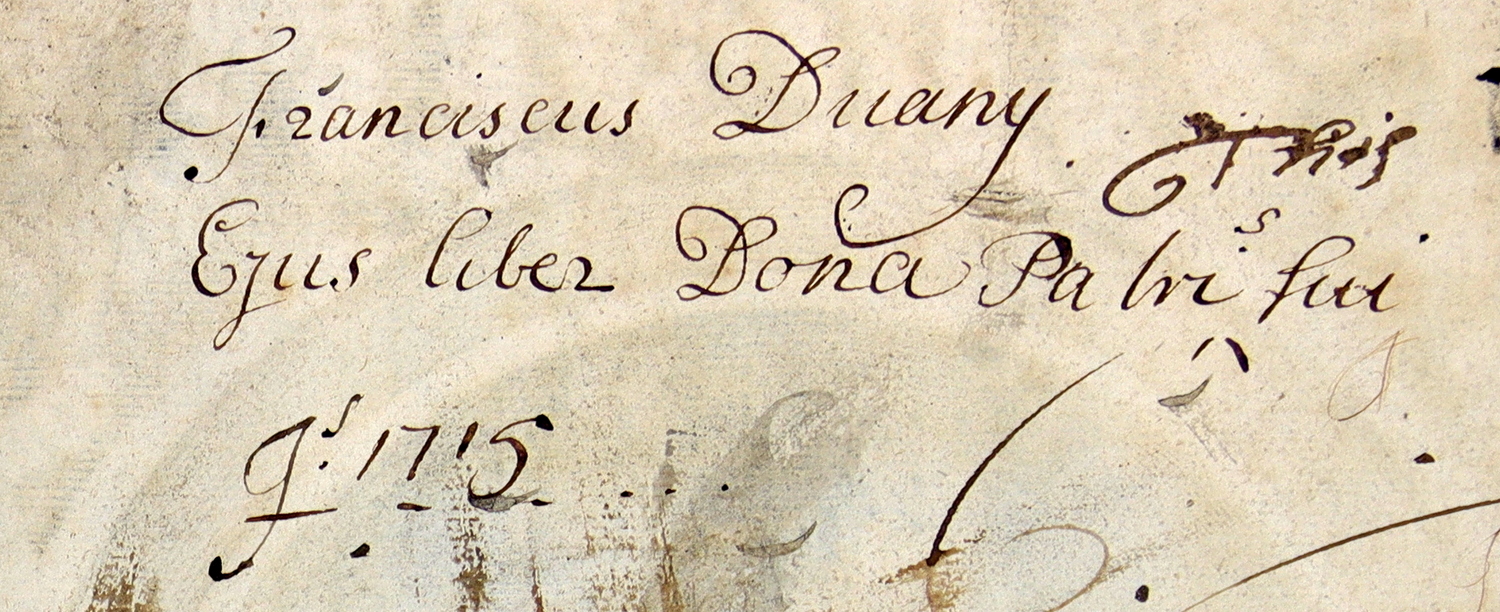 Franciscus Duany.
This
Ejus liber Dona Patris sui
1715